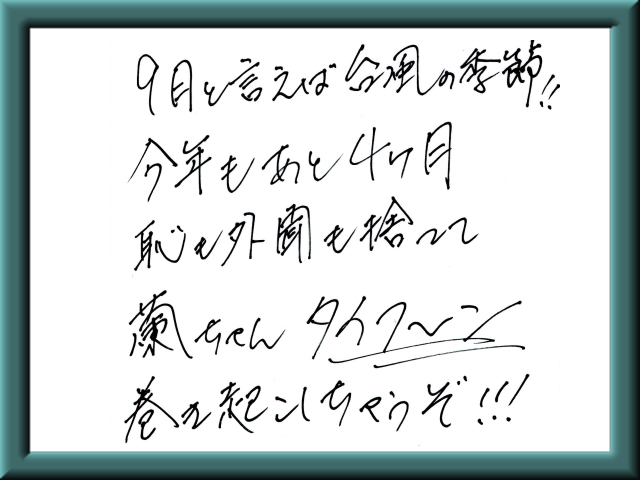 9月と言えば台風の季節!!
今年もあと4ヶ月
恥も外聞も捨てて
蘭ちゃんタイフーン
巻き起こしちゃうぞ!!!